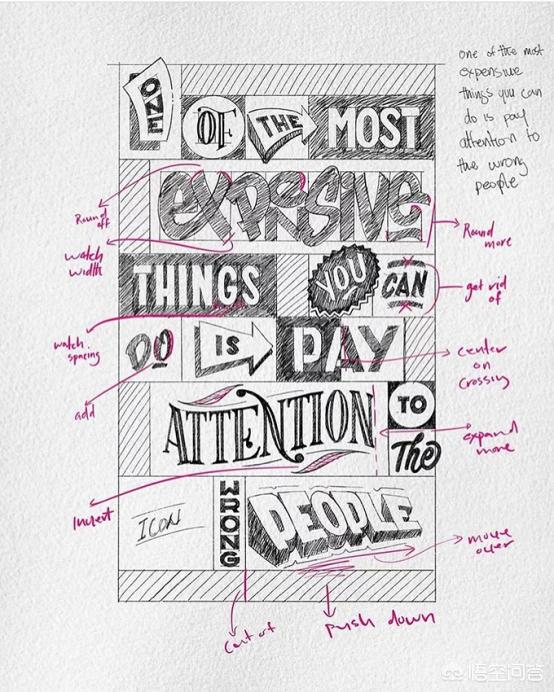 one of the most
expensive
things you can
do is pay
attention to
the wrong
people
ONE OF THE MOST
EXPENSIVE
THINGS YOU CAN
DO IS PAY
ATTENTION TO
The
ICON WRONG PEOPLE
Round
off
watch
width
watch
spacing
add
Invert
Round
more
get rid
of
center
on
crossing
expand
more
move
over
push down
悟空问答